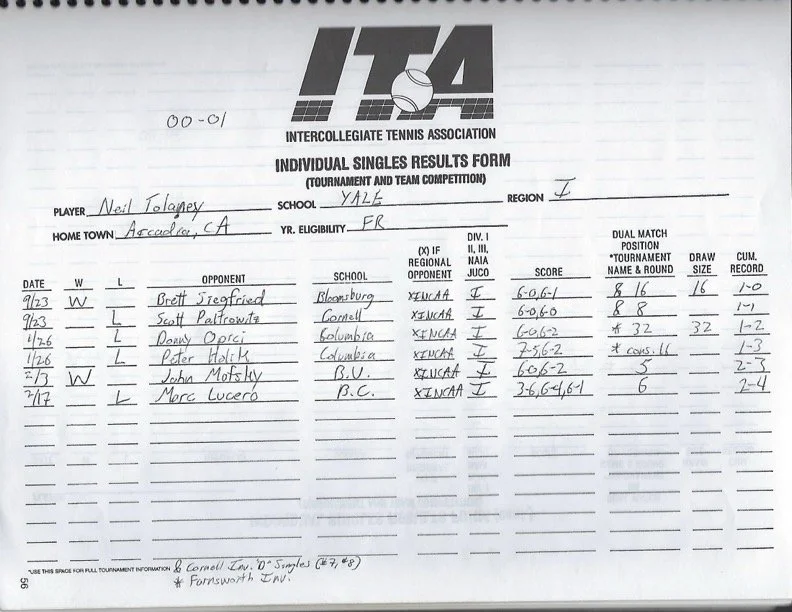 ITA
00-01
INTERCOLLEGIATE TENNIS ASSOCIATION
INDIVIDUAL SINGLES RESULTS FORM
(TOURNAMENT AND TEAM COMPETITION)
PLAYER Neil Tolaney SCHOOL YALE REGION I
HOME TOWN Arcadia, CA YR. ELIGIBILITY FR
DATE W L OPPONENT SCHOOL (X) IF REGIONAL OPPONENT DIV. I II, III, NAIA JUCO SCORE DUAL MATCH POSITION *TOURNAMENT NAME & ROUND DRAW SIZE CUM. RECORD
9/23 W Brett Siegfried Bloomsburg XINCAA I 6-0,6-1 & 16 16 1-0
9/23 L Scott Paltrowitz Cornell XINCAA I 6-0,6-0 & 8 1-1
1/26 L Danny Oprci Columbia XINCAA I 6-0,6-2 * 32 32 1-2
1/26 L Peter Holik Columbia XINCAA I 7-5,6-2 * cons. 16 1-3
2/3 W John Mofsky B.U. XINCAA I 6-0,6-2 5 2-3
2/17 L Marc Lucero B.C. XINCAA I 3-6,6-4,6-1 6 2-4
*USE THIS SPACE FOR FULL TOURNAMENT INFORMATION & Cornell Inv. "D" Singles (#7, #8)
* Farnsworth Inv.
56